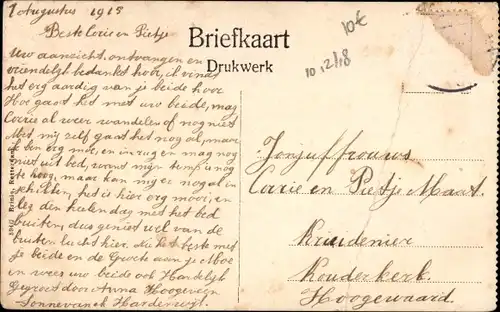 1 Augustus 1915
Beste Corie en Pietje
Uw aanzicht ontvangen en
vriendelijk bedankt hoor, ik vind
het erg aardig van je beide hoor
Hoe gaat het met uw beide, mag
Corrie al weer wandelen of nog niet
Met mij zelf gaat het nog al, maar
ik ben erg moe, en mag nog
niet uit bed, want mijn temp is nog
te hoog, maar kan mij er nog al in
schikken, het is hier erg mooi, en
leg den heelen dag met het bed
buiten, dus geniet wel van de
buiten lucht hier. het beste met
je beide en de Groete aan je Moe
en wees uw beide ook Hartelijk
Gegroet door Anna Hoogeveen
Sonnevanck Harderwijk.
Briefkaart
Drukwerk
10€
10 12/18
Jonjuffrouws
Corrie en Pietje Maat
Kruidenier
Kouderkerk
Hoogewaard